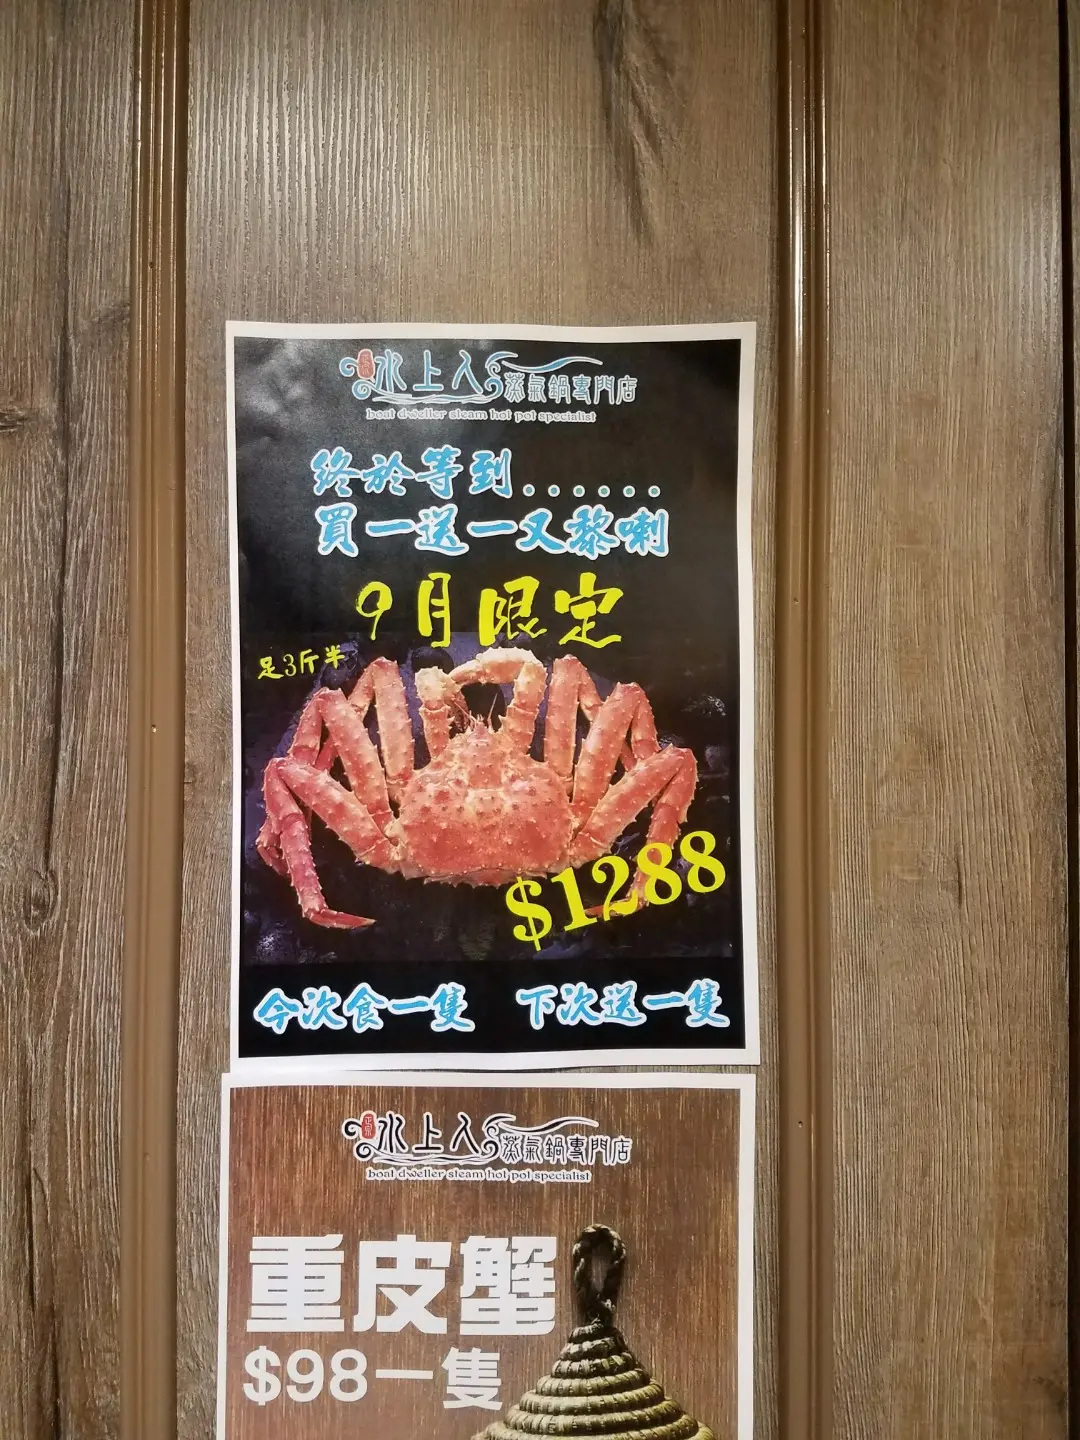 正宗 水上人 蒸氣鍋專門店
boat dweller steam hot pot specialist
終於等到......
買一送一又黎喇
9月限定
足3斤半
$1288
今次食一隻 下次送一隻
正宗 水上人 蒸氣鍋專門店
boat dweller steam hot pot specialist
重皮蟹
$98一隻